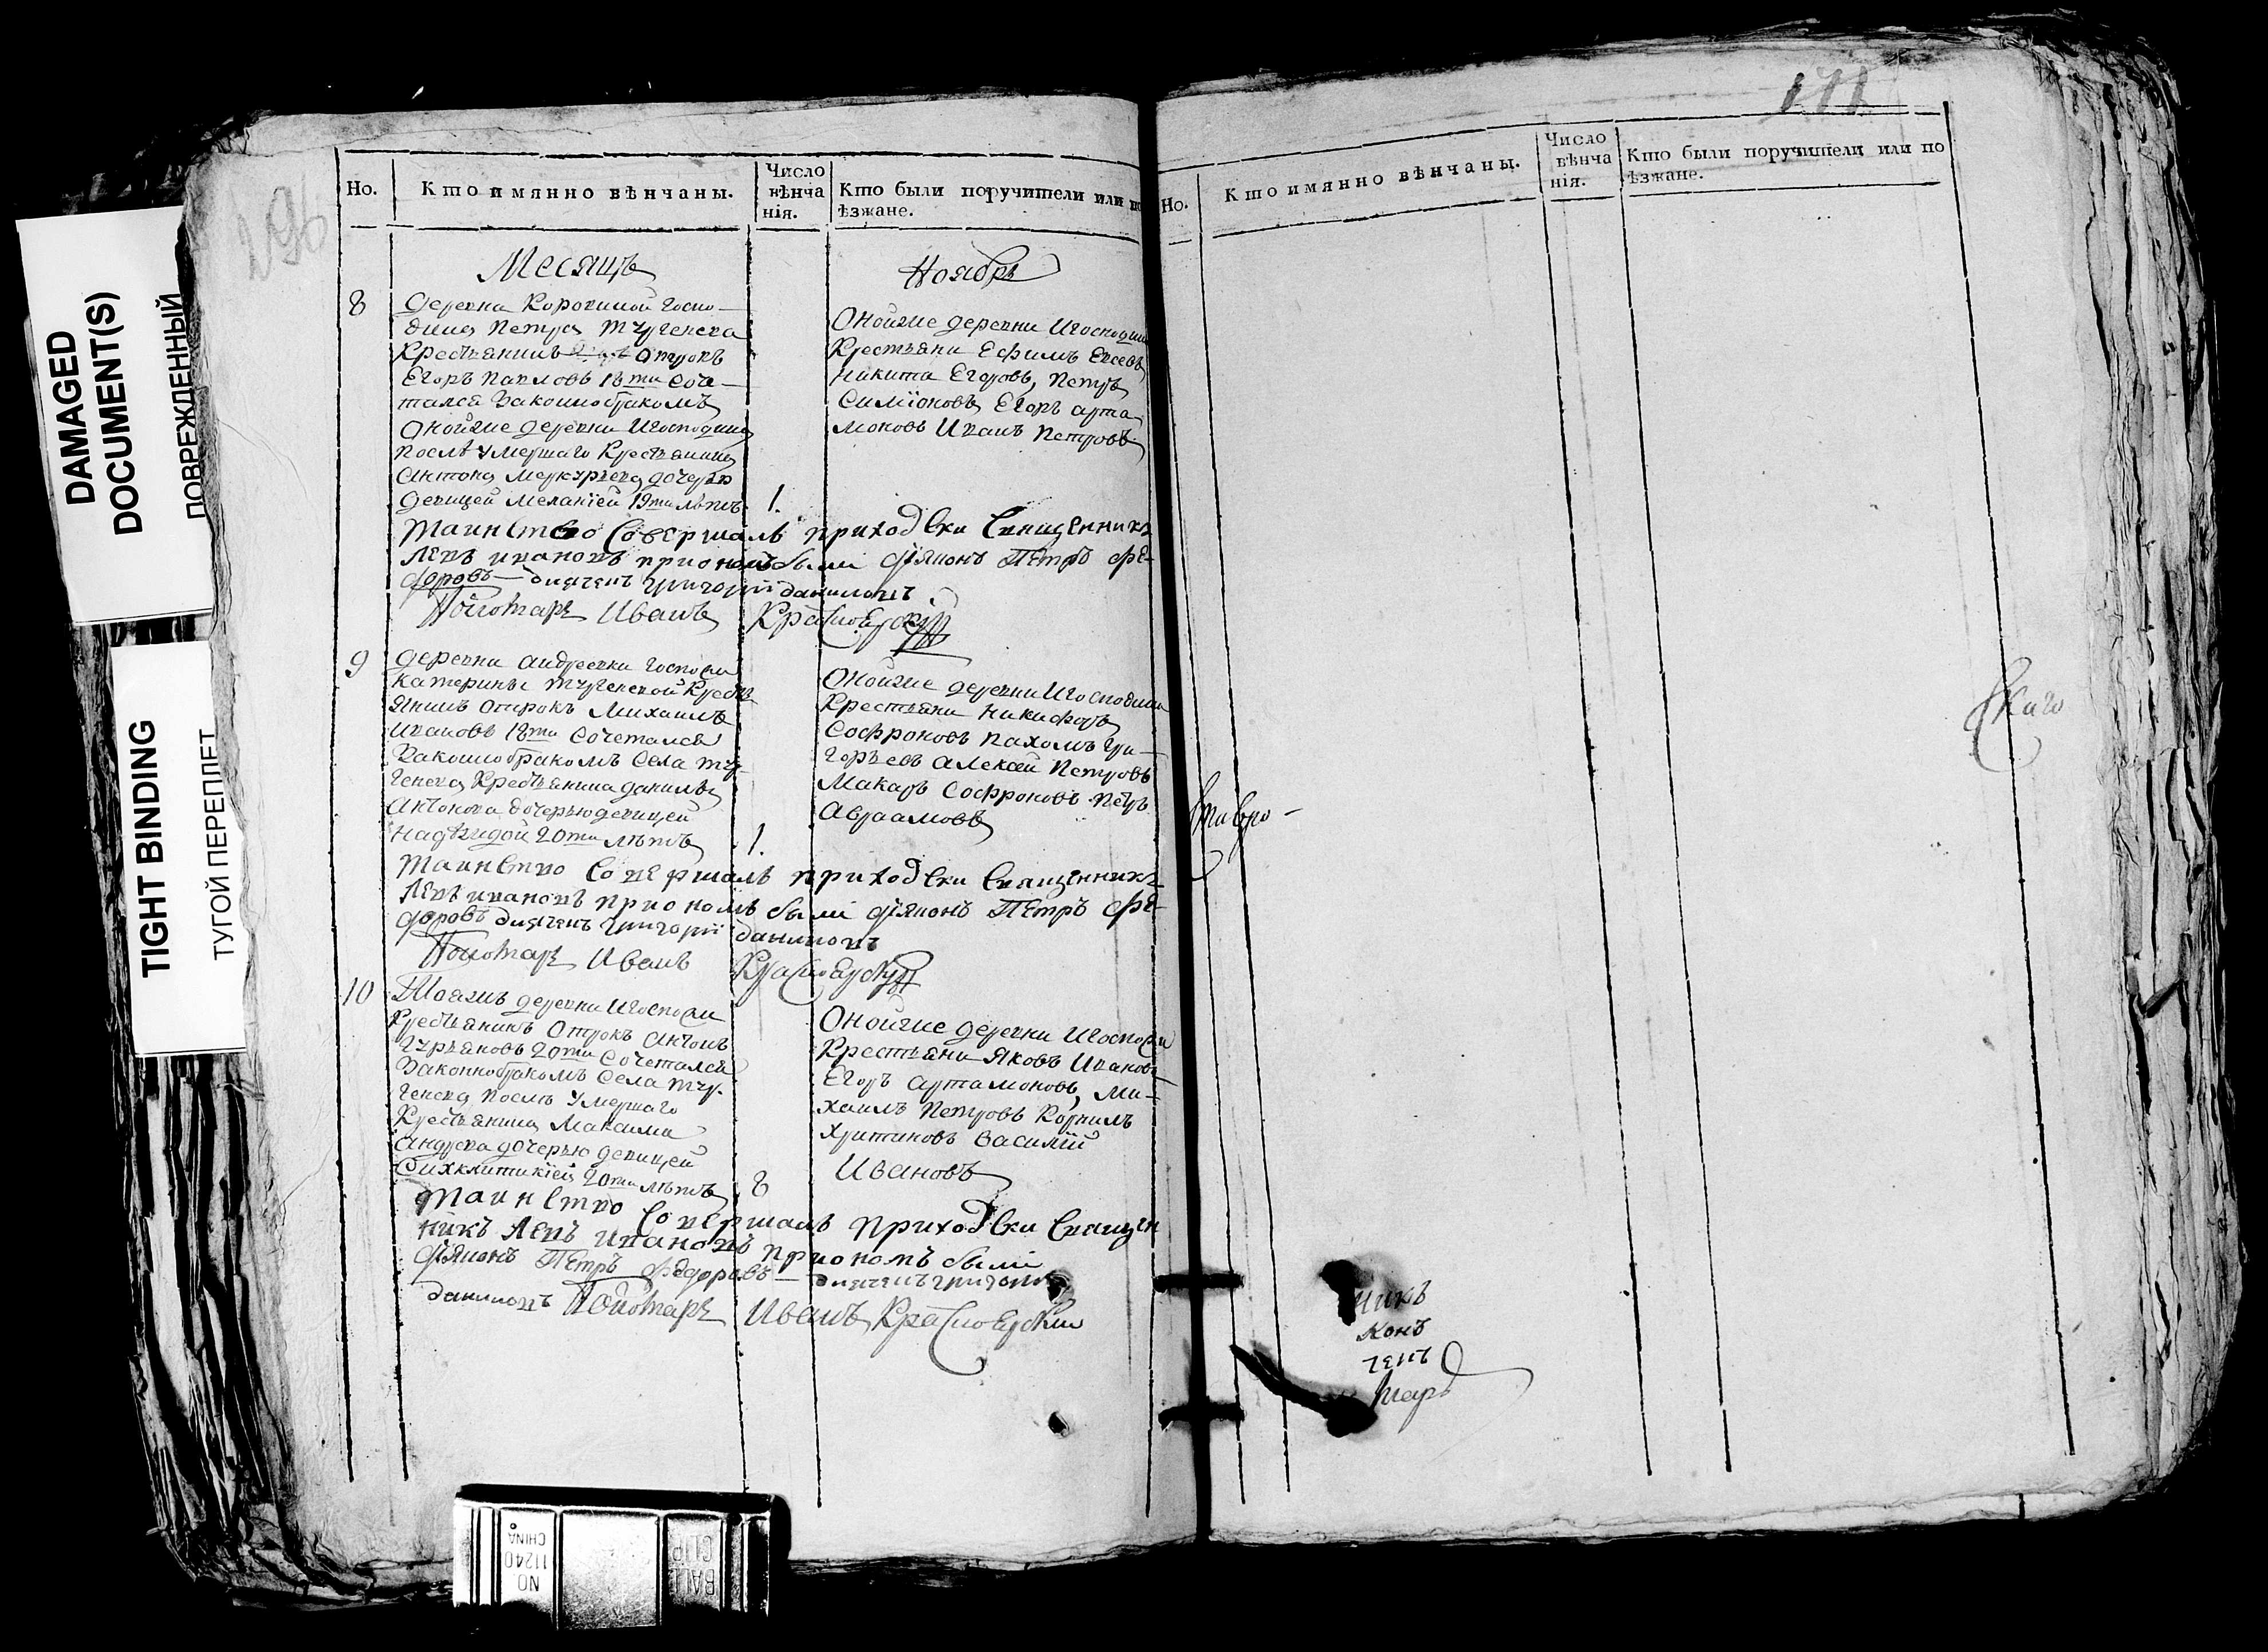 DAMAGED
DOCUMENT(S)
ПОВРЕЖДЕННЫЙ
TIGHT BINDING
ТУГОЙ ПЕРЕПЛЕТ
296
Но.
Кто имянно вѣнчаны.
Число
вѣнча
нія.
Кто были поручители или по
ѣзжане.
Месяцъ
Ноябрь
8
деревни Коровиной Госпо-
дина Петра Тургенева
Крестьянинъ отрокъ
Егоръ Павловъ 18ти соче-
тался Законнобракомъ
Онойже деревни Игосподина
послѣ умершаго Крестьянина
Антона Меркурьева дочерью
девицей Меланїей 19ти лѣтъ
1.
Онойже деревни Игосподина
Крестьяни Ефимъ Евсевъ
Никита Егоровъ, Петръ
Симїоновъ Егоръ Арта
моновъ Иванъ Петровъ
Таинство Совершалъ приходски Священникъ
Левъ ивановъ приономъ были дїяконъ Петръ Фе-
доровъ — дияченъ григорїи даниловъ
Пономарь Иванъ Красноярскій
9
деревни Андреевки Госпожи
Катерины Тургеневой Кресть
янинъ отрокъ Михаилъ
Ивановъ 18ти сочетался
Законнобракомъ Села Тур
генева Крестьянина Данилы
Антонова дочерью девицей
Надѣждой 20ти лѣтъ
1.
Онойже деревни Игосподина
Крестьяни Никифоръ
Софроновъ Пахомъ Гри-
горьевъ Алексѣй Петровъ
Макаръ Софроновъ Петръ
Авраамовъ
Таинство Совершалъ приходски Священникъ
Левъ ивановъ приономъ были дїяконъ Петръ Фе-
доровъ дияченъ григорїи даниловъ
Пономарь Иванъ Красноярскій
10
Тояжъ деревни Игоспожи
Крестьянинъ Отрокъ Антонъ
Гурьяновъ 20ти сочетался
Законнобракомъ Села Тур-
генева послѣ умершаго
Крестьянина Максима
Андреева дочерью девицей
20ти лѣтъ
8
Онойже деревни Игоспожи
Крестьяни Яковъ Ивановъ
Егоръ Артамоновъ, Ми-
хаилъ Петровъ Корнилъ
Василїй
Ивановъ
Таинство Совершалъ приходски Священ
никъ Левъ ивановъ приономъ были
дїяконъ Петръ Федоровъ — дияченъ григорїи
даниловъ Пономарь Иванъ Красноярскій
171
Но.
Кто имянно вѣнчаны.
Число
вѣнча
нія.
Кто были поручители или по
ѣзжане.
скаго
никъ
конъ
ченъ
марь
NO
11240
CHINA
BALL
CLIP